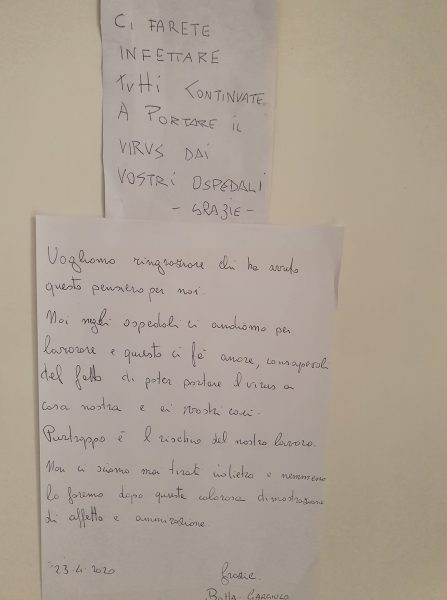 CI FARETE
INFETTARE
TUTTI CONTINUATE
A PORTARE IL
VIRUS DAI
VOSTRI OSPEDALI
- GRAZIE -
Vogliamo ringraziare chi ha avuto
questo pensiero per noi.
Noi negli ospedali ci andiamo per
lavorare e questo ci fa onore, consapevoli
del fatto di poter portare il virus a
casa nostra e ai nostri cari.
Purtroppo è il rischio del nostro lavoro.
Non ci siamo mai tirati indietro e nemmeno
lo faremo dopo questa calorosa dimostrazione
di affetto e ammirazione.
23.4.2020 Grazie.